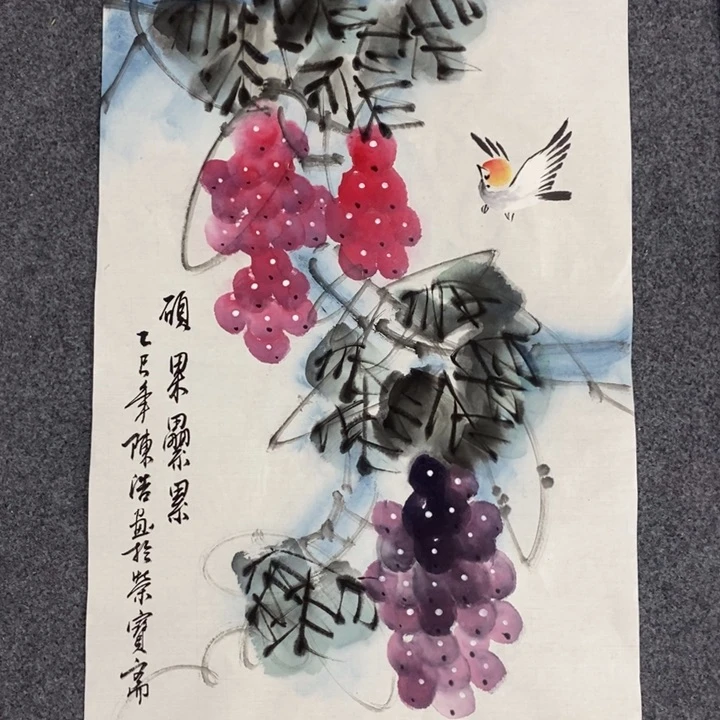 碩果纍累
乙巳年陳浩畫於榮寶齋